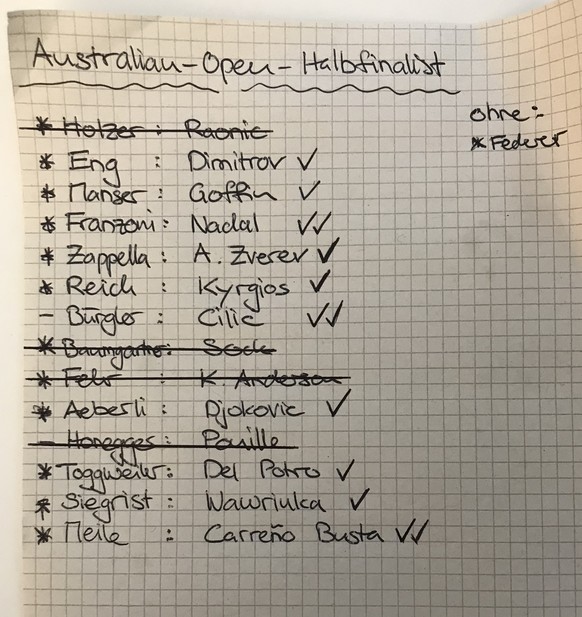 Australian-Open-Halbfinalist
ohne:
* Federer
* Holzer : Raonic
* Eng : Dimitrov ✓
* Manser : Goffin ✓
* Franzoni : Nadal ✓✓
* Zappella : A. Zverev ✓
* Reich : Kyrgios ✓
- Bürgler : Cilic ✓✓
* Baumgartner : Sock
* Fehr : K. Anderson
* Aeberli : Djokovic ✓
- Honegger : Pouille
* Toggweiler : Del Potro ✓
* Siegrist : Wawrinka ✓
* Meile : Carreño Busta ✓✓